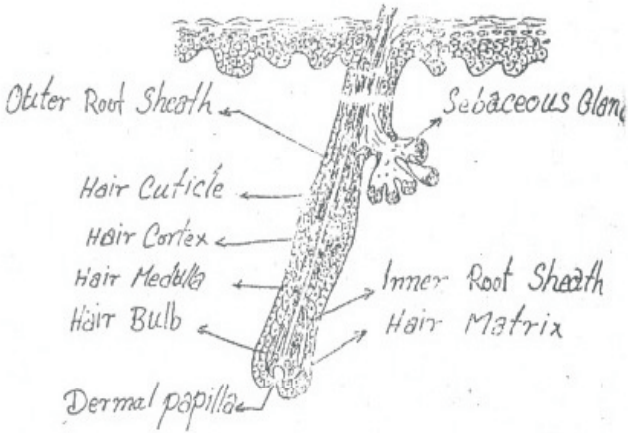 Outer Root Sheath
Sebaceous Gland
Hair Cuticle
Hair Cortex
Hair Medulla
Inner Root Sheath
Hair Bulb
Hair Matrix
Dermal papilla